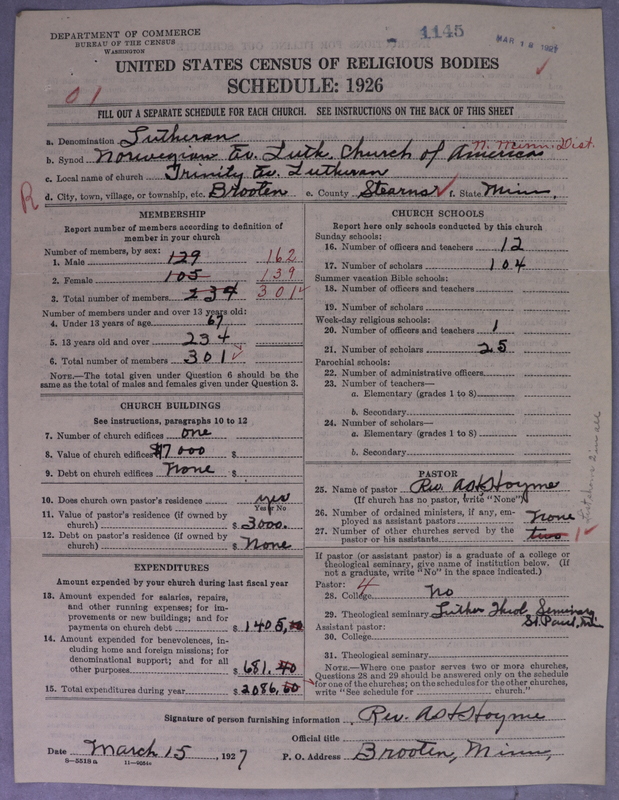 DEPARTMENT OF COMMERCE
BUREAU OF THE CENSUS
WASHINGTON
1145
MAR 18 1927
UNITED STATES CENSUS OF RELIGIOUS BODIES
SCHEDULE: 1926
01
FILL OUT A SEPARATE SCHEDULE FOR EACH CHURCH. SEE INSTRUCTIONS ON THE BACK OF THIS SHEET
a. Denomination Lutheran
b. Synod Norwegian Ev. Luth. Church of America N. Minn. Dist.
c. Local name of church Trinity Ev. Lutheran
R
d. City, town, village, or township, etc. Brooten e. County Stearns f. State Minn.
MEMBERSHIP
Report number of members according to definition of
member in your church
Number of members, by sex:
1. Male 129 162
2. Female 105 139
3. Total number of members 234 301
Number of members under and over 13 years old:
4. Under 13 years of age 67
5. 13 years old and over 234
6. Total number of members 301
NOTE.—The total given under Question 6 should be the
same as the total of males and females given under Question 3.
CHURCH BUILDINGS
See instructions, paragraphs 10 to 12
7. Number of church edifices one
8. Value of church edifices $7000 $
9. Debt on church edifices None $
10. Does church own pastor's residence yes
Yes or No
11. Value of pastor's residence (if owned by
church) $ 3000.
12. Debt on pastor's residence (if owned by
church) $ None
EXPENDITURES
Amount expended by your church during last fiscal year
13. Amount expended for salaries, repairs,
and other running expenses; for im-
provements or new buildings; and for
payments on church debt $ 1405,
14. Amount expended for benevolences, in-
cluding home and foreign missions; for
denominational support; and for all
other purposes $ 681.
15. Total expenditures during year $ 2086,
CHURCH SCHOOLS
Report here only schools conducted by this church
Sunday schools:
16. Number of officers and teachers 12
17. Number of scholars 104
Summer vacation Bible schools:
18. Number of officers and teachers
19. Number of scholars
Week-day religious schools:
20. Number of officers and teachers 1
21. Number of scholars 25
Parochial schools:
22. Number of administrative officers
23. Number of teachers—
a. Elementary (grades 1 to 8)
b. Secondary
24. Number of scholars—
a. Elementary (grades 1 to 8)
b. Secondary
PASTOR
25. Name of pastor Rev. Hoyme
(If church has no pastor, write "None")
26. Number of ordained ministers, if any, em-
ployed as assistant pastors None
27. Number of other churches served by the
pastor or his assistants two 1
2 in all
If pastor (or assistant pastor) is a graduate of a college or
theological seminary, give name of institution below. (If
not a graduate, write "No" in the space indicated.)
Pastor: 4
28. College No
29. Theological seminary Luther Theol. Seminary
St. Paul,
Assistant pastor:
30. College
31. Theological seminary
NOTE.—Where one pastor serves two or more churches,
Questions 28 and 29 should be answered only on the schedule
for one of the churches; on the schedules for the other churches,
write "See schedule for church."
Signature of person furnishing information Rev. Hoyme
Official title
Date March 15, 1927 P. O. Address Brooten, Minn,
8—5518a 11—9254a